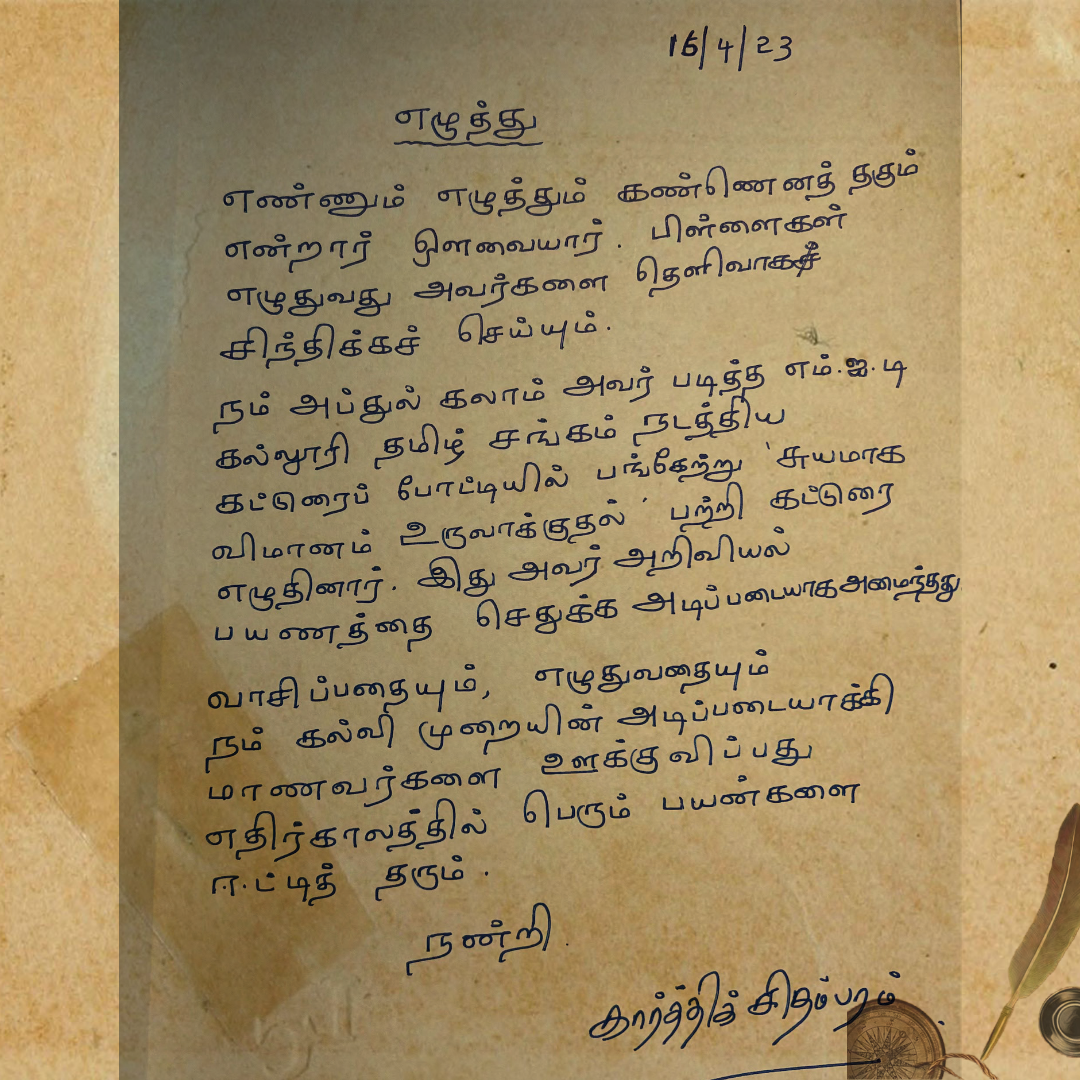 16/4/23
எழுத்து
எண்ணும் எழுத்தும் கண்ணெனத் தகும்
என்றார் ஔவையார். பிள்ளைகள்
எழுதுவது அவர்களை தெளிவாகச்
சிந்திக்கச் செய்யும்.
நம் அப்துல் கலாம் அவர் படித்த எம்.ஐ.டி
கல்லூரி தமிழ் சங்கம் நடத்திய
கட்டுரைப் போட்டியில் பங்கேற்று 'சுயமாக
விமானம் உருவாக்குதல்' பற்றி கட்டுரை
எழுதினார். இது அவர் அறிவியல்
பயணத்தை செதுக்க அடிப்படையாக அமைந்தது.
வாசிப்பதையும், எழுதுவதையும்
நம் கல்வி முறையின் அடிப்படையாக்கி
மாணவர்களை ஊக்குவிப்பது
எதிர்காலத்தில் பெரும் பயன்களை
ஈட்டித் தரும்.
நன்றி.
கார்த்திக் சிதம்பரம்